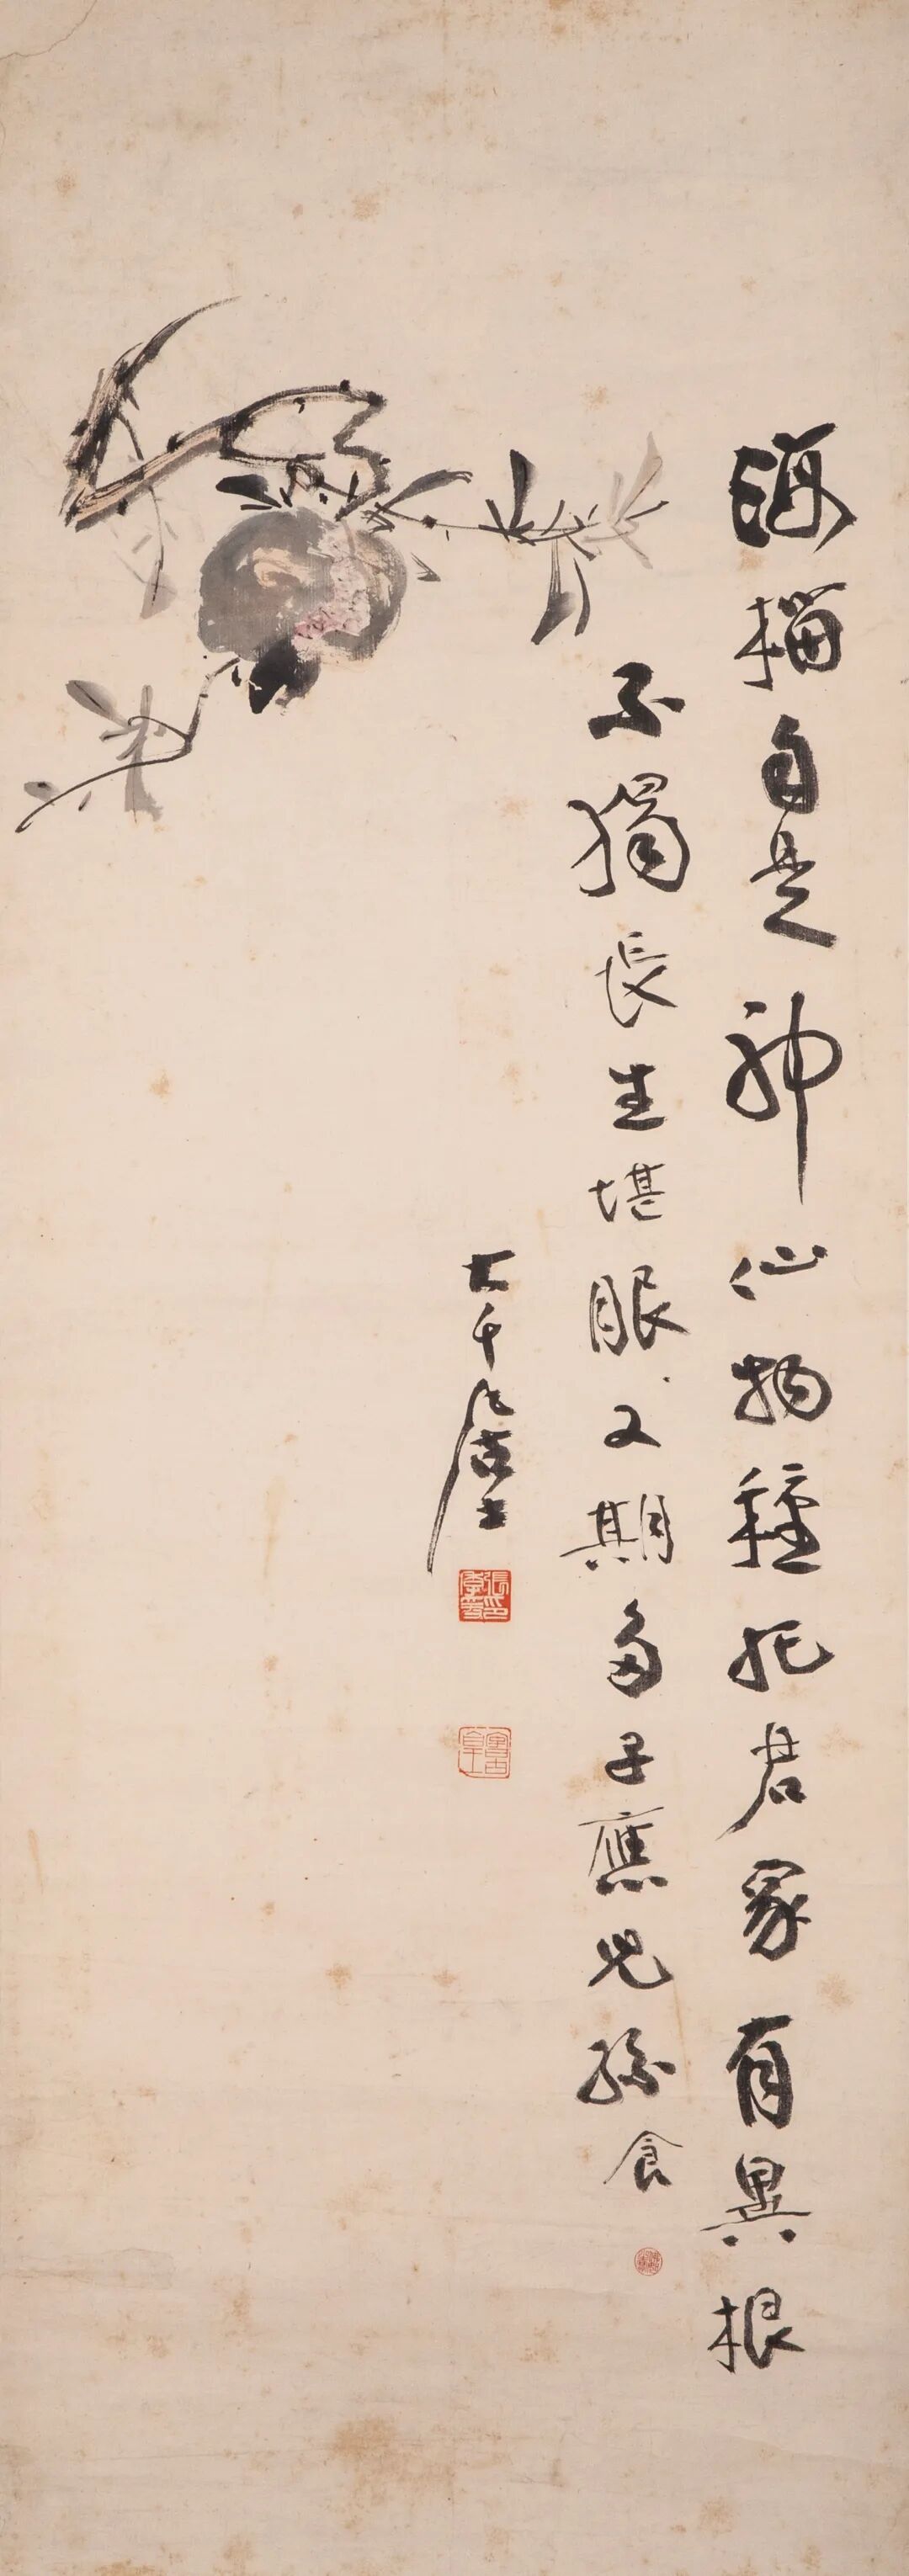 海榴自是神仙物種托君家有異根
不獨長生堪眼又期多子應兒孫食
大千居士
張季爰印